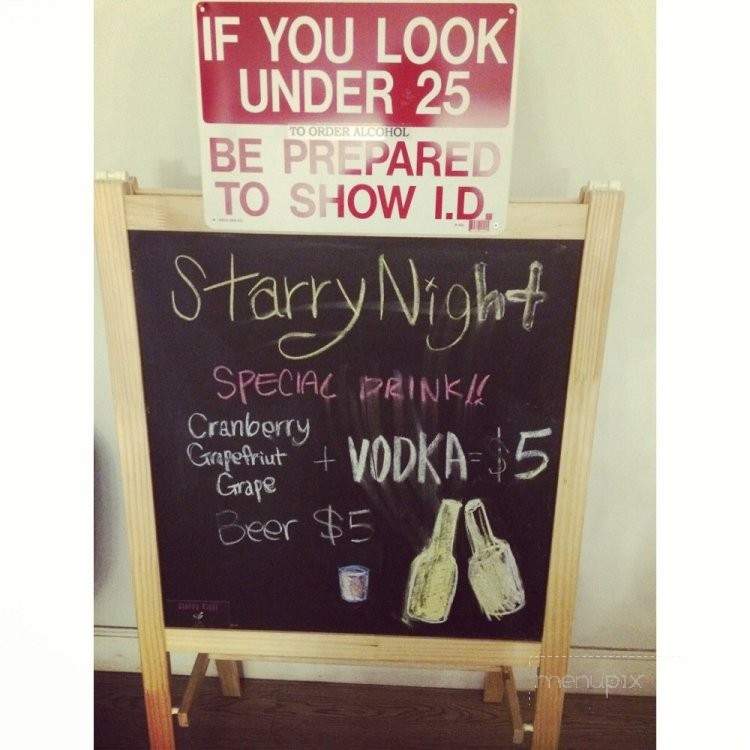 IF YOU LOOK
UNDER 25
TO ORDER ALCOHOL
BE PREPARED
TO SHOW I.D.
Starry Night
SPECIAL DRINK!!
Cranberry
Grapefriut + VODKA = $5
Grape
Beer $5
menupix